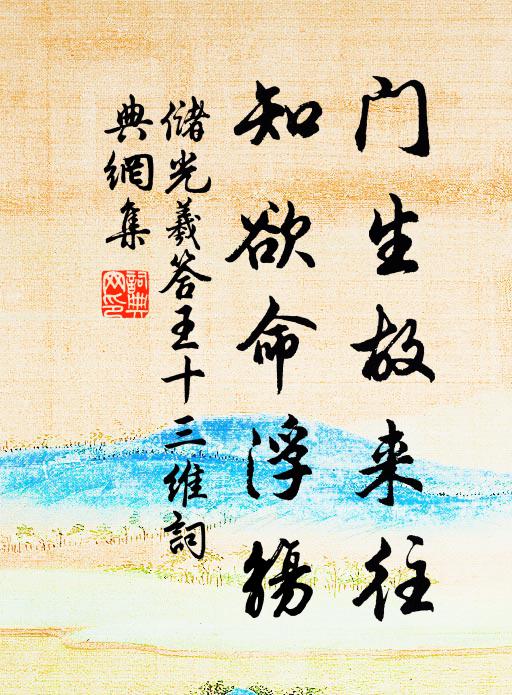 门生故来往
知欲命浮觞
储光羲答王十三维詞
典網集
詞典
网印